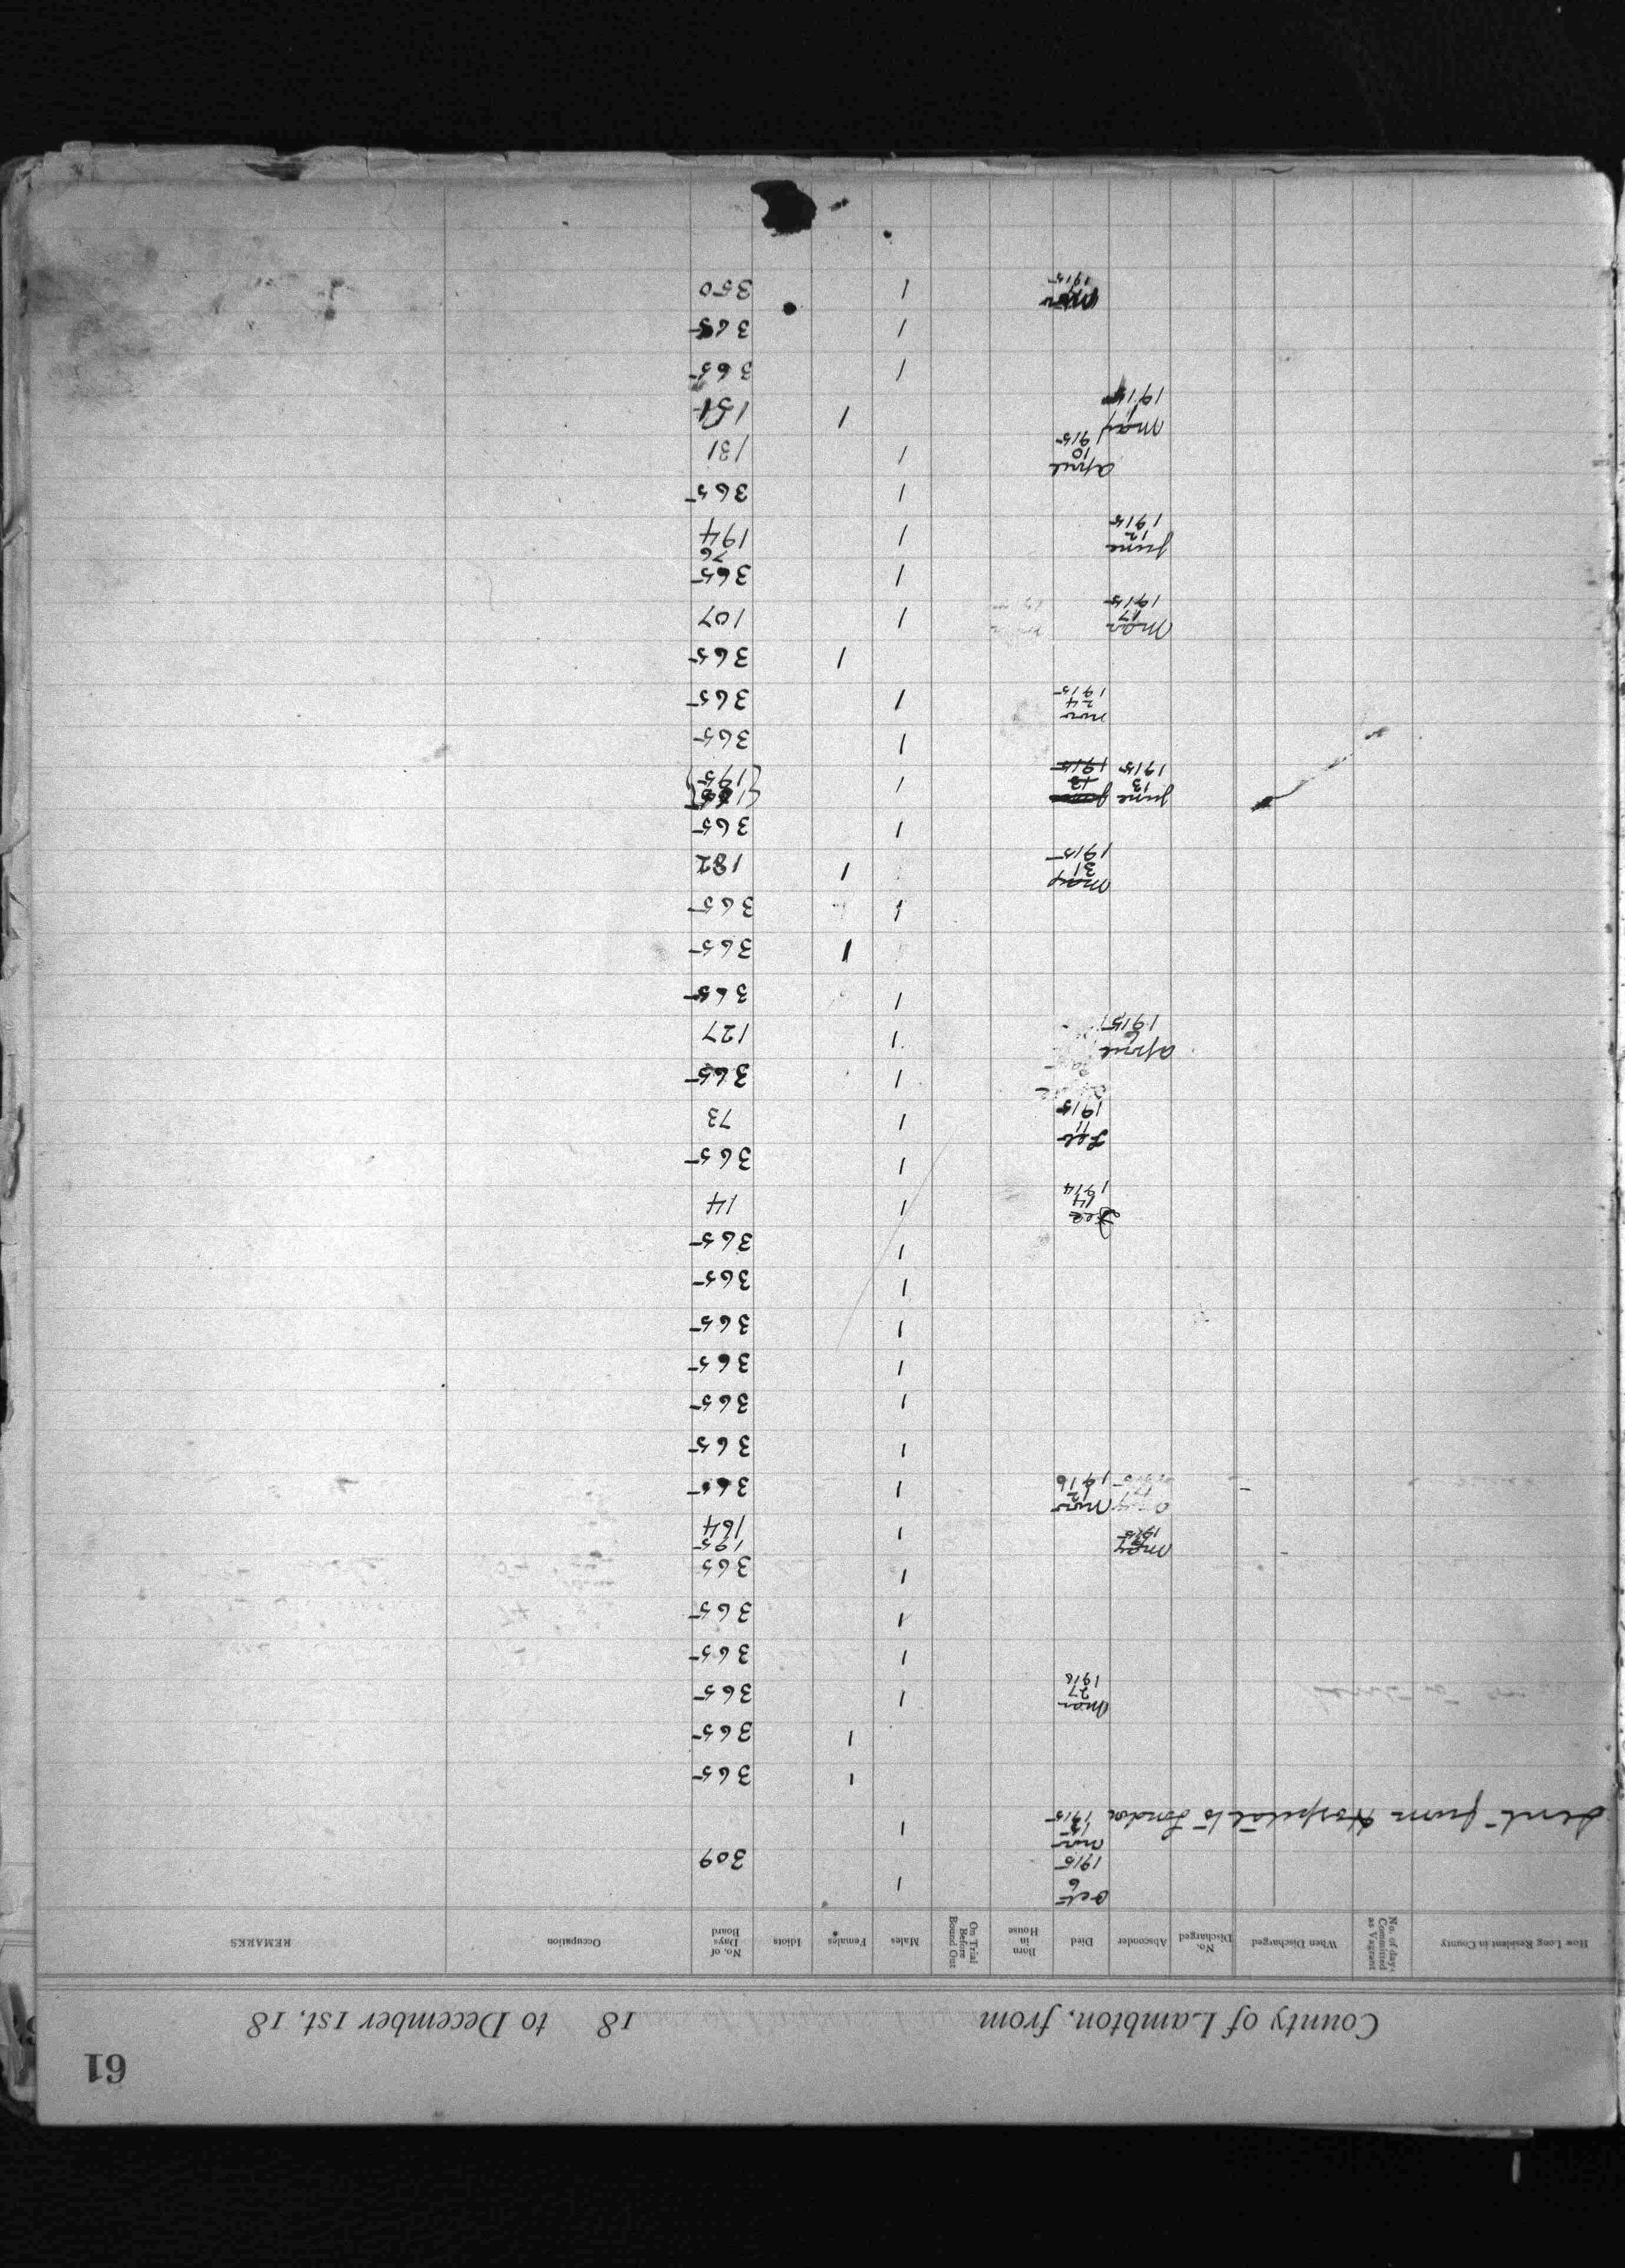 61
County of Lambton, from 18 to December 1st, 18
How Long Resident in County | No. of days Committed as Vagrant | When Discharged | No. Discharged | Absconder | Died | Born in House | On Trial Before Bound Out | Males | Females | Idiots | No. of Days Board | Occupation | REMARKS
Oct 6 1915 | 1 | 309
Sent from Hospital to London | Nov 1915 | 1
1 | 365
1 | 365
Mar 27 1916 | 1 | 365
1 | 365
1 | 365
1 | 365
May 1915 | 1 | 195 164
Nov 12 1916 | 1 | 365
1 | 365
1 | 365
1 | 365
1 | 365
1 | 365
1 | 365
Dec 14 1914 | 1 | 14
1 | 365
Feb 11 1915 | 1 | 73
1 | 365
April 6 1915 | 1 | 127
1 | 365
1 | 365
1 | 365
May 31 1915 | 1 | 182
1 | 365
June 13 1915 | June 13 1915 | 1 | 195
1 | 365
Nov 24 1915 | 1 | 365
1 | 365
Mar 17 1915 | 1 | 107
1 | 365
June 12 1915 | 1 | 76 194
1 | 365
April 10 915 | 1 | 131
May 1 1915 | 1 | 151
1 | 365
1 | 365
Nov 1915 | 1 | 350